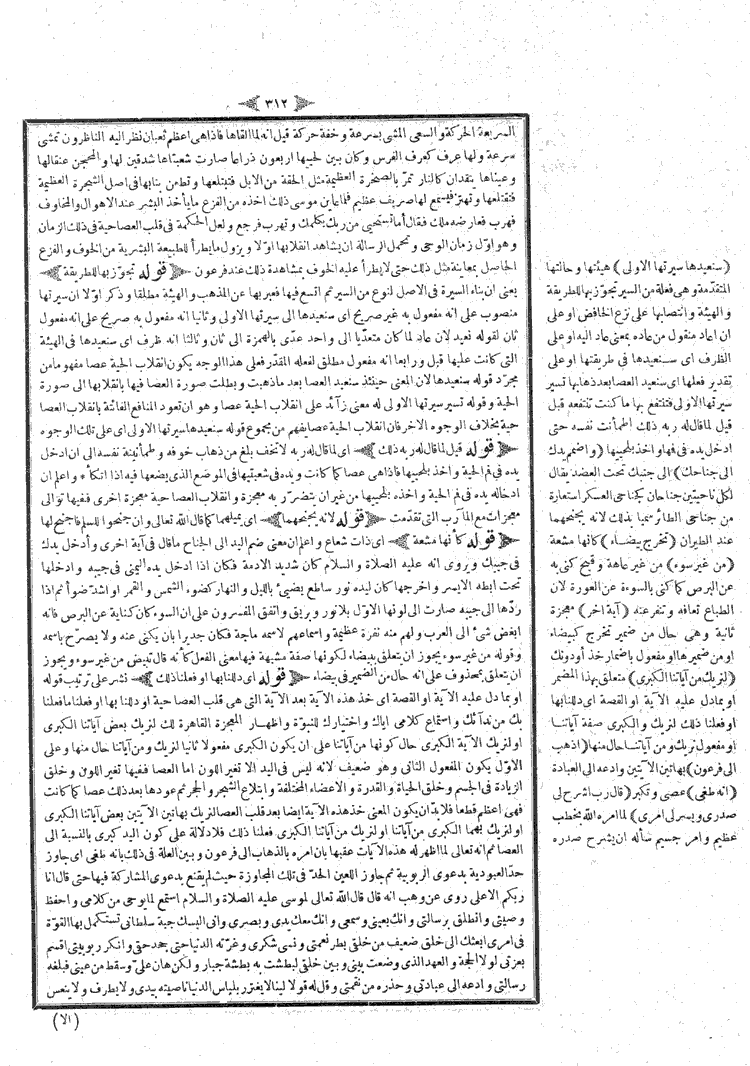 ﴿ ٣١٢ ﴾
السريعة الحركة و السعى المشى بسرعة و خفة حركة قيل انه لما القاها فاذا هى اعظم ثعبان نظر اليه الناظرون تمشى
بسرعة ولها عرف كعرف الفرس وكان بين لحييها اربعون ذراعا صارت شعبتاها شدقين لها و المحجن عنقا لها
وعيناها يتقدان كالنار تمرّ بالصخرة العظيمة مثل الخلفة من الابل فتبتلعها و تطعن بنابها فى اصل الشجرة العظيمة
فتقتلعها و تهتز فيسمع لها صريف عظيم فلما عاين موسى ذلك اخذه من الفزع ما يأخذ البشر عند الاهوال و المخاوف
فهرب فعارضه ملك فقال أما تستحيى من ربك يكلمك و تهرب فرجع و لعل الحكمة فى قلب العصا حية فى ذلك الزمان
و هو اوّل زمان الوحى و تحمل الرسالة ان يشاهد انقلابها اوّلا و يزول ما يطرأ للطبيعة البشرية من الخوف و الفزع
الحاصل بمعاينة مثل ذلك حتى لا يطرأ عليه الخوف بمشاهدة ذلك عند فرعون ﴿ قوله تجوّز بها للطريقة ﴾
يعنى ان بناء السيرة فى الاصل لنوع من السير ثم اتسع فيها فعبر بها عن المذهب و الهيئة مطلقا و ذكر اوّلا ان سيرتها
منصوب على انه مفعول به غير صريح اى سنعيدها الى سيرتها الاولى و ثانيا انه مفعول به صريح على انه مفعول
ثان لقوله نعيد لان عاد لما كان متعدّيا الى واحد عدّى بالهمزة الى ثان و ثالثا انه ظرف اى سنعيدها فى الهيئة
التى كانت عليها قبل و رابعا انه مفعول مطلق لفعله المقدّر فعلى هذا الوجه يكون انقلاب الحية عصا مفهوما من
مجرّد قوله سنعيدها لان المعنى حينئذ سنعيد العصا بعد ما ذهبت و بطلت صورة العصا فيها بانقلابها الى صورة
الحية و قوله تسير سيرتها الاولى له معنى زآئد على انقلاب الحية عصا و هو ان تعود المنافع الفائتة بانقلاب العصا
حية بخلاف الوجوه الاخر فان انقلاب الحية عصا يفهم من مجموع قوله سنعيدها سيرتها الاولى اى على تلك الوجوه
﴿ قوله قيل لما قال له ربه ذلك ﴾ اى لما قال له ربه لا تخف بلغ من ذهاب خوفه و طمأنينة نفسه الى ان ادخل
يده فى فم الحية و اخذ بلحييها فاذا هى عصا كما كانت و يده فى شعبتيها فى الموضع الذى يضعها فيه اذا اتكأ * و اعلم ان
ادخاله يده فى فم الحية و اخذه بلحييها من غير ان يتضرّر به معجزة و انقلاب العصا حية معجزة اخرى ففيها توالى
معجزات مع المآرب التى تقدّمت ﴿ قوله لانه يجنحهما ﴾ اى يميلهما كما قال الله تعالى و ان جنحوا للسلم فاجنح لها
﴿ قوله كأنها مشعة ﴾ اى ذات شعاع و اعلم ان معنى ضم اليد الى الجناح ما قال فى آية اخرى و أدخل يدك
فى جيبك و يروى انه عليه الصلاة و السلام كان شديد الادمة فكان اذا ادخل يده اليمنى فى جيبه و ادخلها
تحت ابطه الايسر و اخرجها كان ليده نور ساطع يضيئ بالليل و النهار كضوء الشمس و القمر او اشد ضوأ ثم اذا
ردّها الى جيبه صارت الى لونها الاوّل بلا نور و بريق و اتفق المفسرون على ان السوء كان كناية عن البرص فانه
ابغض شئ الى العرب و لهم منه نفرة عظيمة و اسماعهم لاسمه ماجة فكان جديرا بان يكنى عنه ولا يصرّح باسمه
و قوله من غير سوء يجوز ان يتعلق ببيضاء لكونها صفة مشبهة فيها معنى الفعل كأنه قال تبيض من غير سوء و يجوز
ان يتعلق بمحذوف على انه حال من الضمير فى بيضاء ﴿ قوله اى دللنا بها او فعلنا ذلك ﴾ نشر على ترتيب قوله
او بما دل عليه الآية او القصة اى خذ هذه الآية بعد الآية التى هى قلب العصا حية او دللنا بها او فعلنا ما فعلنا
بك من ندآئك و استماع كلامى اياك و اختيارك للنبوّة و اظهار المعجزة القاهرة لك لنريك بعض آياتنا الكبرى
او لنريك الآية الكبرى حال كونها من آياتنا على ان يكون الكبرى مفعولا ثانيا لنريك و من آياتنا حال منها و على
الاوّل يكون المفعول الثانى و هو ضعيف لانه ليس فى اليد الا تغير اللون اما العصا ففيها تغير اللون و خلق
الزيادة فى الجسم و خلق الحياة و القدرة و الاعضاء المختلفة و ابتلاع الشجر و الحجر ثم عودها بعد ذلك عصا كما كانت
فهى اعظم قطعا فلا بد ان يكون المعنى خذ هذه الآية ايضا بعد قلب العصا لنريك بهاتين الآيتين بعض آياتنا الكبرى
او لنريك بهما الكبرى من آياتنا او لنريك من آياتنا الكبرى فعلنا ذلك فلا دلالة على كون اليد كبرى بالنسبة الى
العصا ثم انه تعالى لما اظهر له هذه الآيات عقبها بان امره بالذهاب الى فرعون و بين العلة فى ذلك بانه طغى اى جاوز
حدّ العبودية بدعوى الربوبية ثم جاوز اللعين الحدّ فى تلك المجاوزة حيث لم يقنع بدعوى المشاركة فيها حتى قال انا
ربكم الاعلى روى عن وهب انه قال قال الله تعالى لموسى عليه الصلاة و السلام استمع لما يوحى من كلامى و احفظ
وصيتى و انطلق برسالتى و انك بعينى و سمعى و انك معك يدى و بصرى و انى البسك جبة سلطانى تستكمل بها القوّة
فى امرى ابعثك الى خلق ضعيف من خلقى بطر نعمتى و نسى شكرى و غرّته الدنيا حتى جحد حقى و انكر ربوبيتى اقسم
بعزتى لولا الحجة و العهد الذى وضعت بينى و بين خلقى لبطشت به بطشة جبار و لكن هان علىّ و سقط من عينى فبلغه
رسالتى و ادعه الى عبادتى و حذره من نقمتى و قل له قولا لينا لا يغتر بلباس الدنيا ناصيته بيدى و لا يطرف و لا يتنفس
( الا )
(سنعيدها سيرتها الاولى) هيئتها و حالتها
المتقدّمة و هى فعلة من السير تجوّز بها للطريقة
و الهيئة و انتصابها على نزع الخافض او على
ان اعاد منقول من عاده بمعنى عاد اليه او على
الظرف اى سنعيدها فى طريقتها او على
تقدير فعلها اى سنعيد العصا بعد ذهابها تسير
سيرتها الاولى فتنتفع بها ما كنت تنتفعه قبل
قيل لما قال له ربه ذلك اطمأنت نفسه حتى
ادخل يده فى فمها و اخذ بلحييها (و اضمم يدك
الى جناحك) الى جنبك تحت العضد يقال
لكل ناحيتين جناحان كجناحى العسكر استعارة
من جناحى الطائر سميا بذلك لانه يجنحهما
عند الطيران (تخرج بيضاء) كأنها مشعة
(من غير سوء) من غير عاهة و قبح كنى به
عن البرص كما كنى بالسوءة عن العورة لان
الطباع تعافه و تنفر عنه (آية اخرى) معجزة
ثانية و هى حال من ضمير تخرج كبيضاء
او من ضميرها او مفعول باضمار خذ او دونك
(لنريك من آياتنا الكبرى) متعلق بهذا المضمر
او بما دل عليه الآية او القصة اى دللنا بها
او فعلنا ذلك لنريك و الكبرى صفة آياتنا
او مفعول نريك و من آياتنا حال منها (اذهب
الى فرعون) بهاتين الآيتين و ادعه الى العبادة
(انه طغى) عصى و تكبر (قال رب اشرح لى
صدرى و يسر لى امرى) لما امره الله بخطب
عظيم و امر جسيم سأله ان يشرح صدره